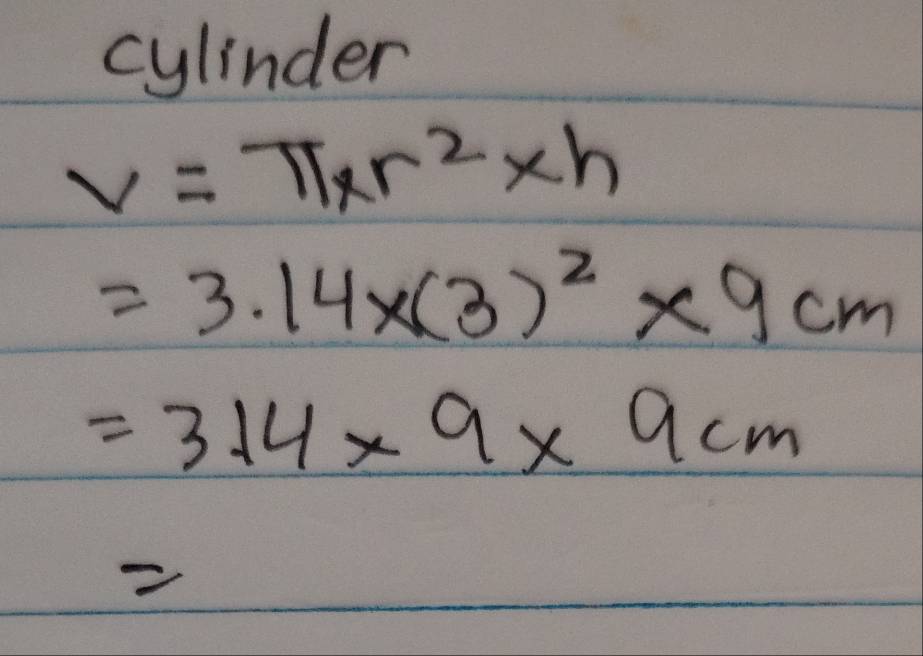 cylinder
v = π x r² x h
= 3.14 x (3)² x 9 cm
= 3.14 x 9 x 9 cm
=